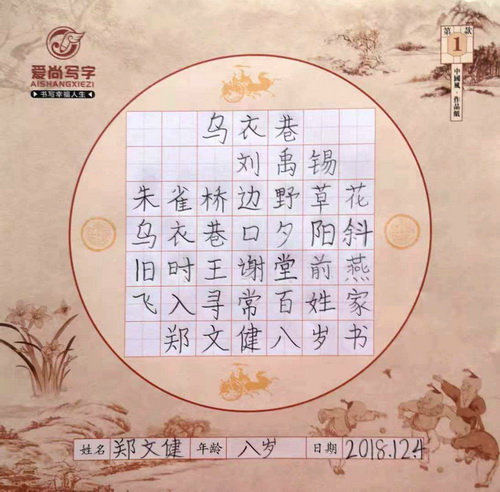 爱尚写字
AISHANGXIEZI
书写幸福人生
第1款
中國風·作品紙
乌衣巷
刘禹锡
朱雀桥边野草花
乌衣巷口夕阳斜
旧时王谢堂前燕
飞入寻常百姓家
郑文健八岁书
姓名 郑文健 年龄 八岁 日期 2018.12.4